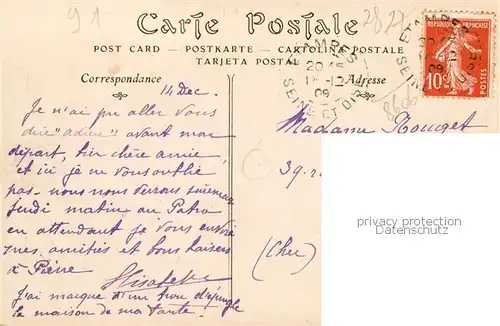 91
2827
Carte Postale
POST CARD — POSTKARTE — CARTOLINE POSTALE
TARJETA POSTAL
Correspondance
Adresse
ETAMPES
20 45
14-12
09
SEINE ET OISE
REPUBLIQUE FRANÇAISE
10c
14 Dec.
Je n'ai pu aller vous
dire "adieu" avant mon
départ, bien chère amie,
et ici je ne vous oublie
pas - nous nous verrons
jeudi matin au Patro
en attendant je vous envoie
mes amitiés et bons baisers
à Pierre
Elisabeth
J'ai marqué d'un trou d'épingle
la maison de ma tante.
Madame Rouget
39 r.
(Cher)
privacy.copyright